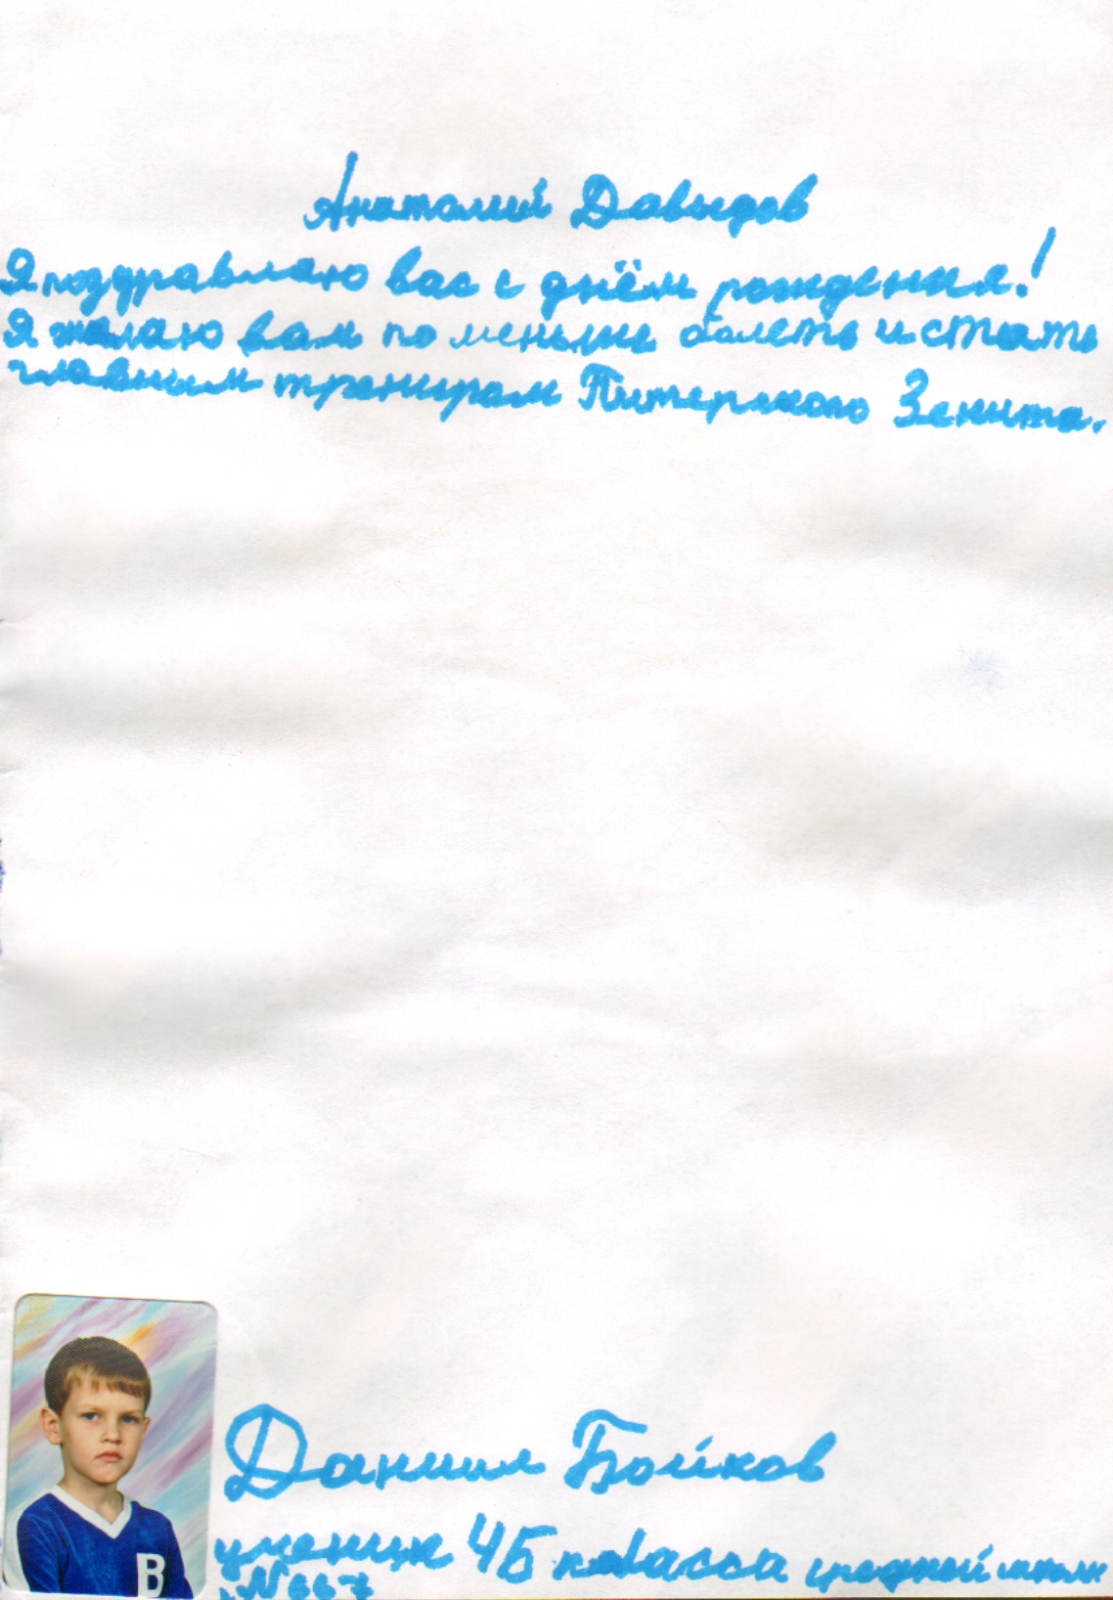 Анатолий Давыдов
Я поздравляю вас с днём рождения!
Я желаю вам по меньше болеть и стать
главным тренером Питерского Зенита.
Даниил Бойков
ученик 4Б класса средней школы
№667
B